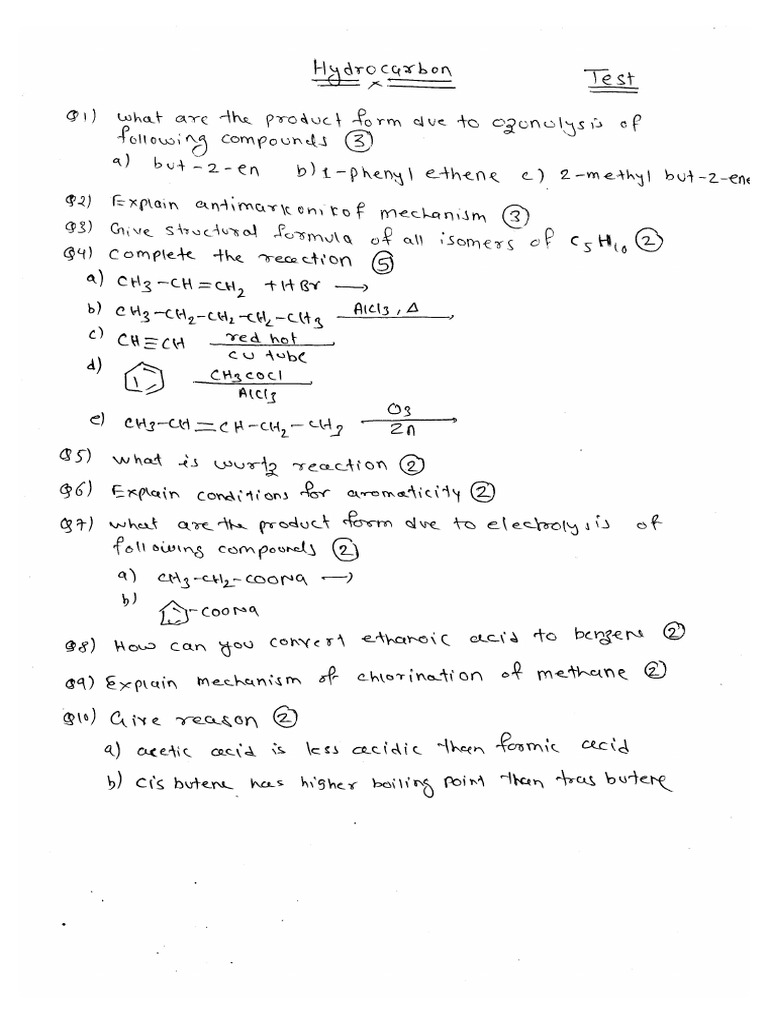 Hydrocarbon Test
Q1) What are the product form due to ozonolysis of
following compounds ③
a) but-2-en b) 1-phenyl ethene c) 2-methyl but-2-ene
Q2) Explain antimarkonikof mechanism ③
Q3) Give structural formula of all isomers of C5H10 ②
Q4) Complete the reaction ⑤
a) CH3-CH=CH2 + HBr ⟶
b) CH3-CH2-CH2-CH2-CH3 AlCl3, Δ
c) CH≡CH red hot
cu tube
d) CH3COCl
AlCl3
e) CH3-CH=CH-CH2-CH3 O3
Zn
Q5) What is wurtz reaction ②
Q6) Explain conditions for aromaticity ②
Q7) What are the product form due to electrolysis of
following compounds ②
a) CH3-CH2-COONa ⟶
b) -COONa
Q8) How can you convert ethanoic acid to benzene ②
Q9) Explain mechanism of chlorination of methane ②
Q10) Give reason ②
a) acetic acid is less acidic than formic acid
b) cis butene has higher boiling point than tras butene